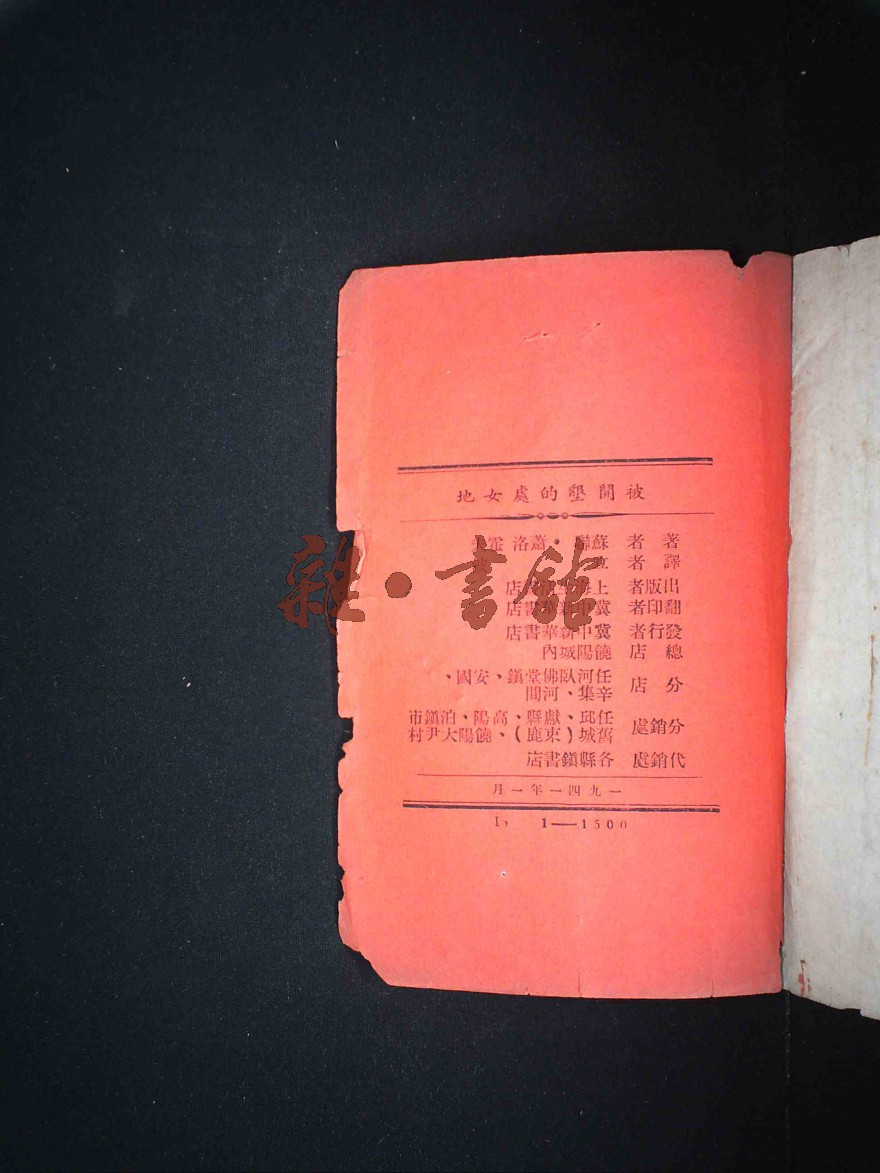 被開墾的處女地
著者 蘇聯·蕭洛霍
譯者 立
出版者 上海 店
翻印者 冀中新華書店
發行者 冀中新華書店
總店 饒陽城內
分店 任河臥佛堂鎮、安國、
辛集、河間
分銷處 任邱、獻縣、高陽、泊鎮市
舊城(束鹿)、饒陽大尹村
代銷處 各縣鎮書店
一九四一年一月
I, 1—1500
雜·書館